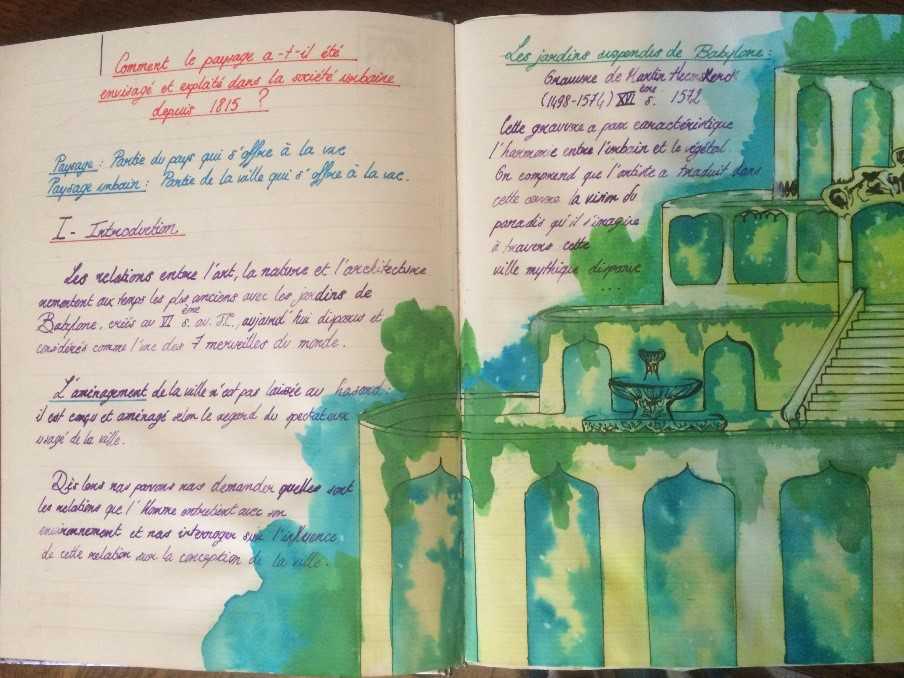 Comment le paysage a-t-il été
envisagé et exploité dans la société urbaine
depuis 1815 ?
Paysage : Partie du pays qui s'offre à la vue
Paysage urbain : Partie de la ville qui s'offre à la vue.
I - Introduction
Les relations entre l'art, la nature et l'architecture
remontent aux temps les plus anciens avec les jardins de
Babylone, créés au VI ème s. av. JC, aujourd'hui disparus et
considérés comme l'une des 7 merveilles du monde.
L'aménagement de la ville n'est pas laissée au hasard :
il est conçu et aménagé selon le regard du spectateur
usagé de la ville.
Dès lors nous pouvons nous demander quelles sont
les relations que l'Homme entretient avec son
environnement et nous interroger sur l'influence
de cette relation sur la conception de la ville.
Les jardins suspendus de Babylone :
Gravure de Martin Heemskerck
(1498-1574) XVI ème s. 1572
Cette gravure a pour caractéristique
l'harmonie entre l'urbain et le végétal.
On comprend que l'artiste a traduit dans
cette œuvre la vision du
paradis qu'il s'imagine
à travers cette
ville mythique disparue
...